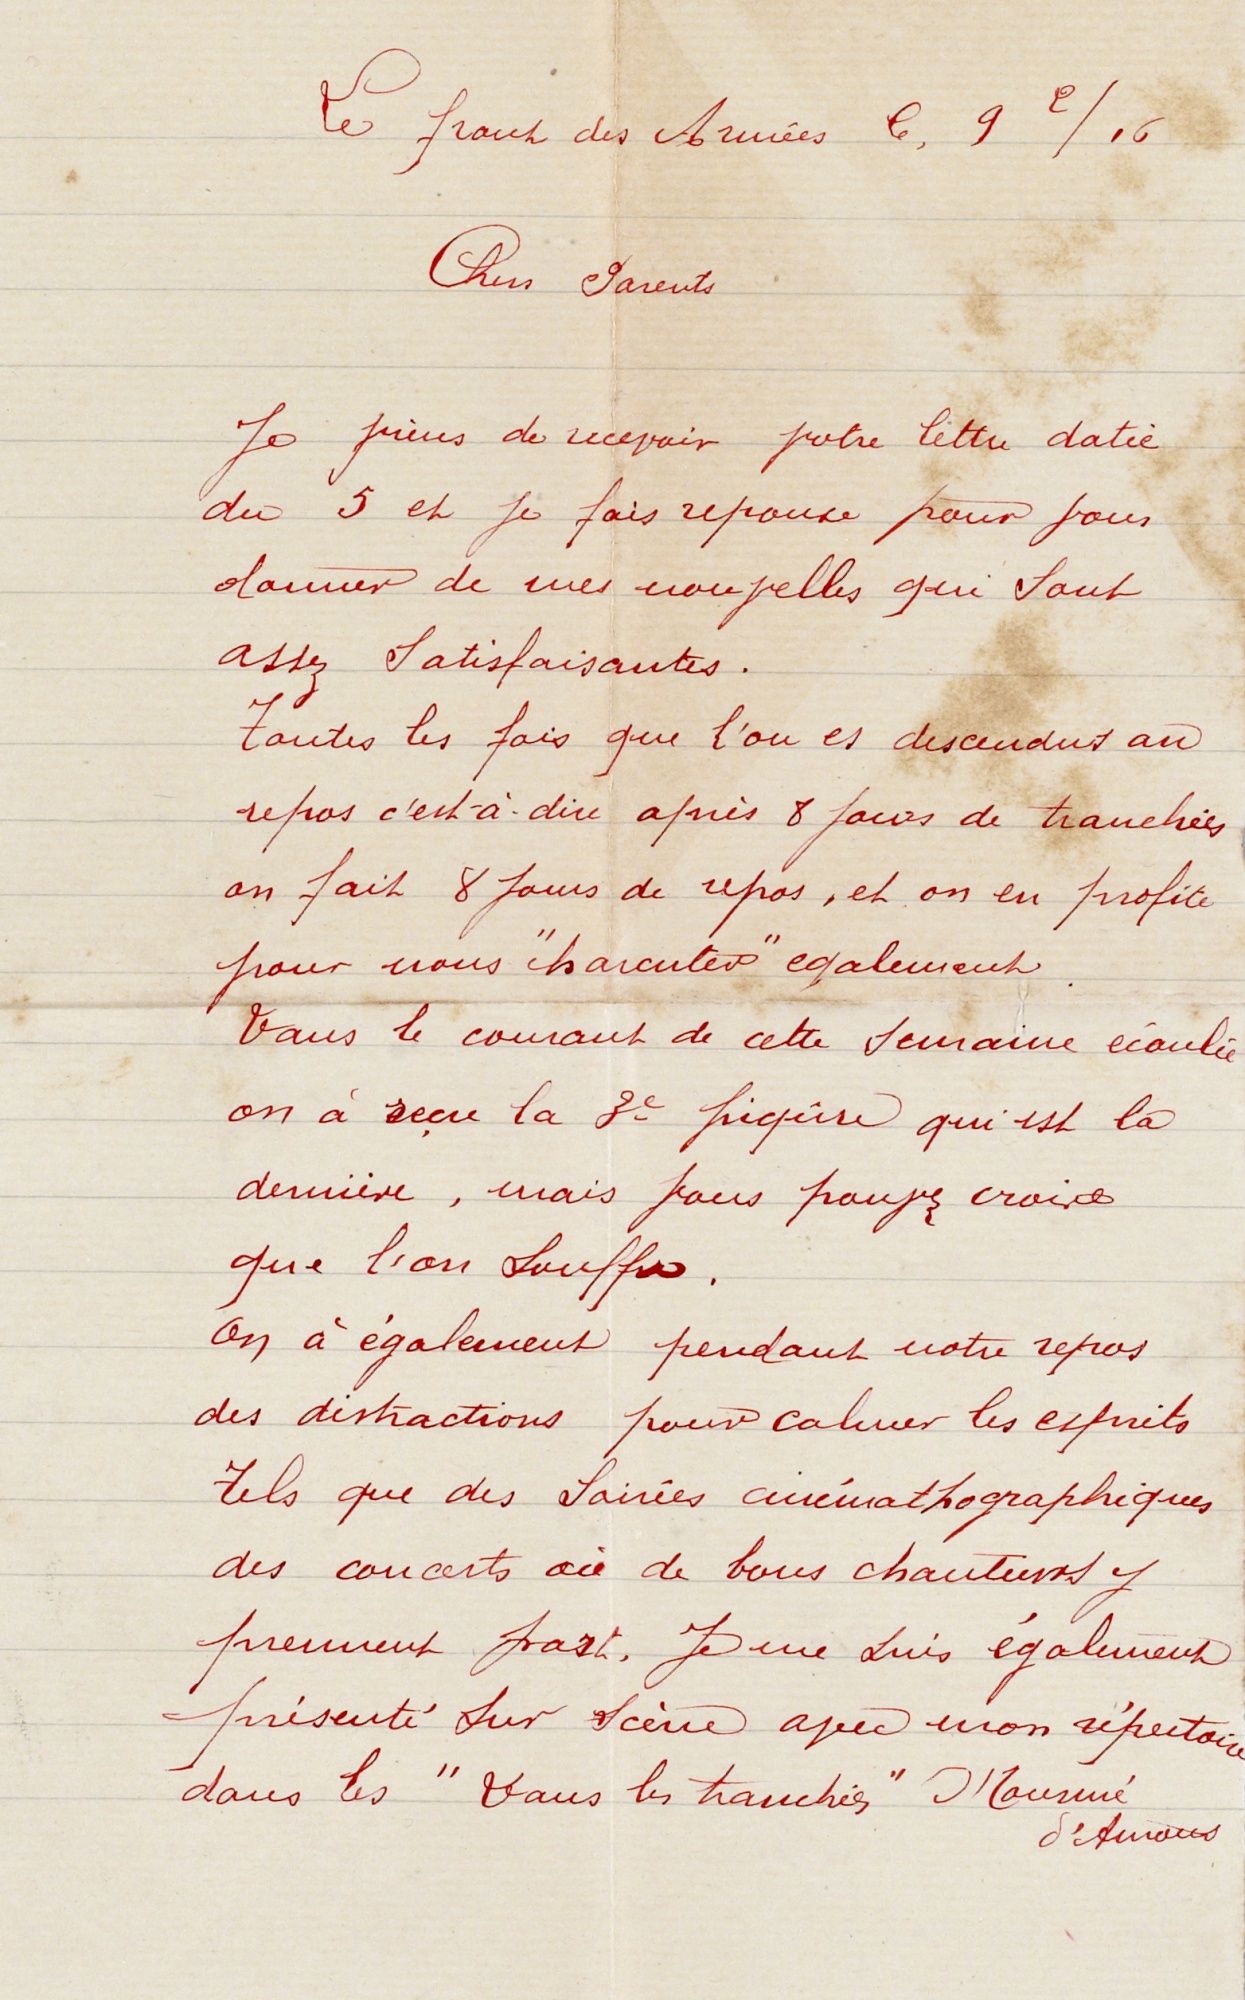 Le front des Armées le, 9 2/16
Chers Parents
Je viens de recevoir votre lettre datée
du 5 et je fais reponse pour vous
donner de mes nouvelles qui sont
assez satisfaisantes.
Toutes les fois que l'on es descendus au
repos c'est-à-dire après 8 jours de tranchées
on fait 8 jours de repos, et on en profite
pour nous "charcuter" egalement.
Dans le courant de cette semaine écoulée
on à reçu la 3e piqûre qui est la
dernière, mais vous pouvez croire
que l'on souffre.
On à également pendant notre repos
des distractions pour calmer les esprits
Tels que des soirées cinémathographiques
des concerts où de bons chanteurs y
prennent part. Je me suis également
présenté sur scène avec mon répertoire
dans les "Dans les tranchées"
d'Amour